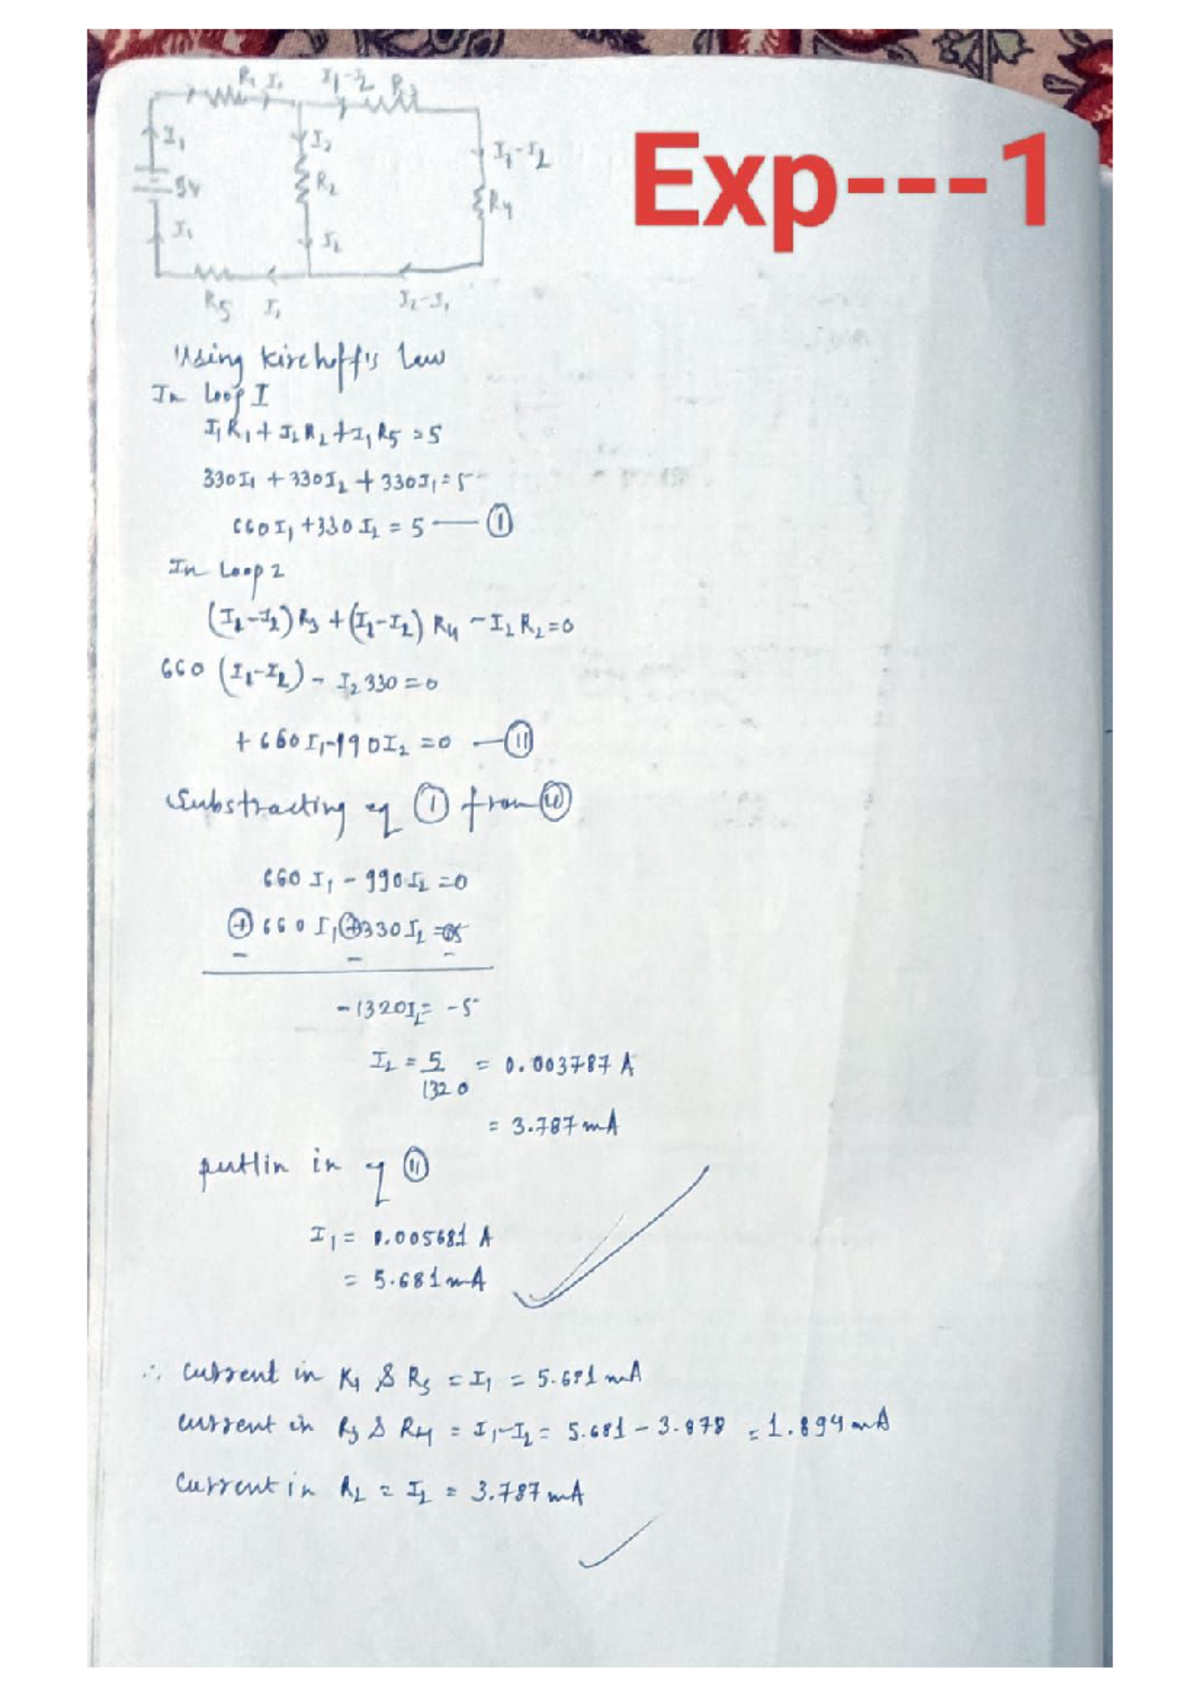 Exp---1
R1 I1 I1-I2 R3
I1 I2 I1-I2
5v R2 R4
I1 I2
R5 I1 I2-I1
Using Kirchoff's Law
In loop I
I1R1 + I2R2 + I1R5 = 5
330I1 + 330I2 + 330I1 = 5
660I1 + 330I2 = 5 — (I)
In Loop 2
(I1-I2) R3 + (I1-I2) R4 - I2R2 = 0
660 (I1-I2) - I2 330 = 0
+ 660I1-990I2 = 0 — (II)
Substracting eq (I) from (II)
660 I1 - 990I2 = 0
+ 660 I1 + 330I2 = 5
- - -
-1320I2 = -5
I2 = 5/1320 = 0.003787 A
= 3.787 mA
puttin in eq (II)
I1 = 0.005681 A
= 5.681 mA
∴ Current in R1 & R5 = I1 = 5.681 mA
Current in R3 & R4 = I1-I2 = 5.681 - 3.878 = 1.894 mA
Current in R2 = I2 = 3.787 mA